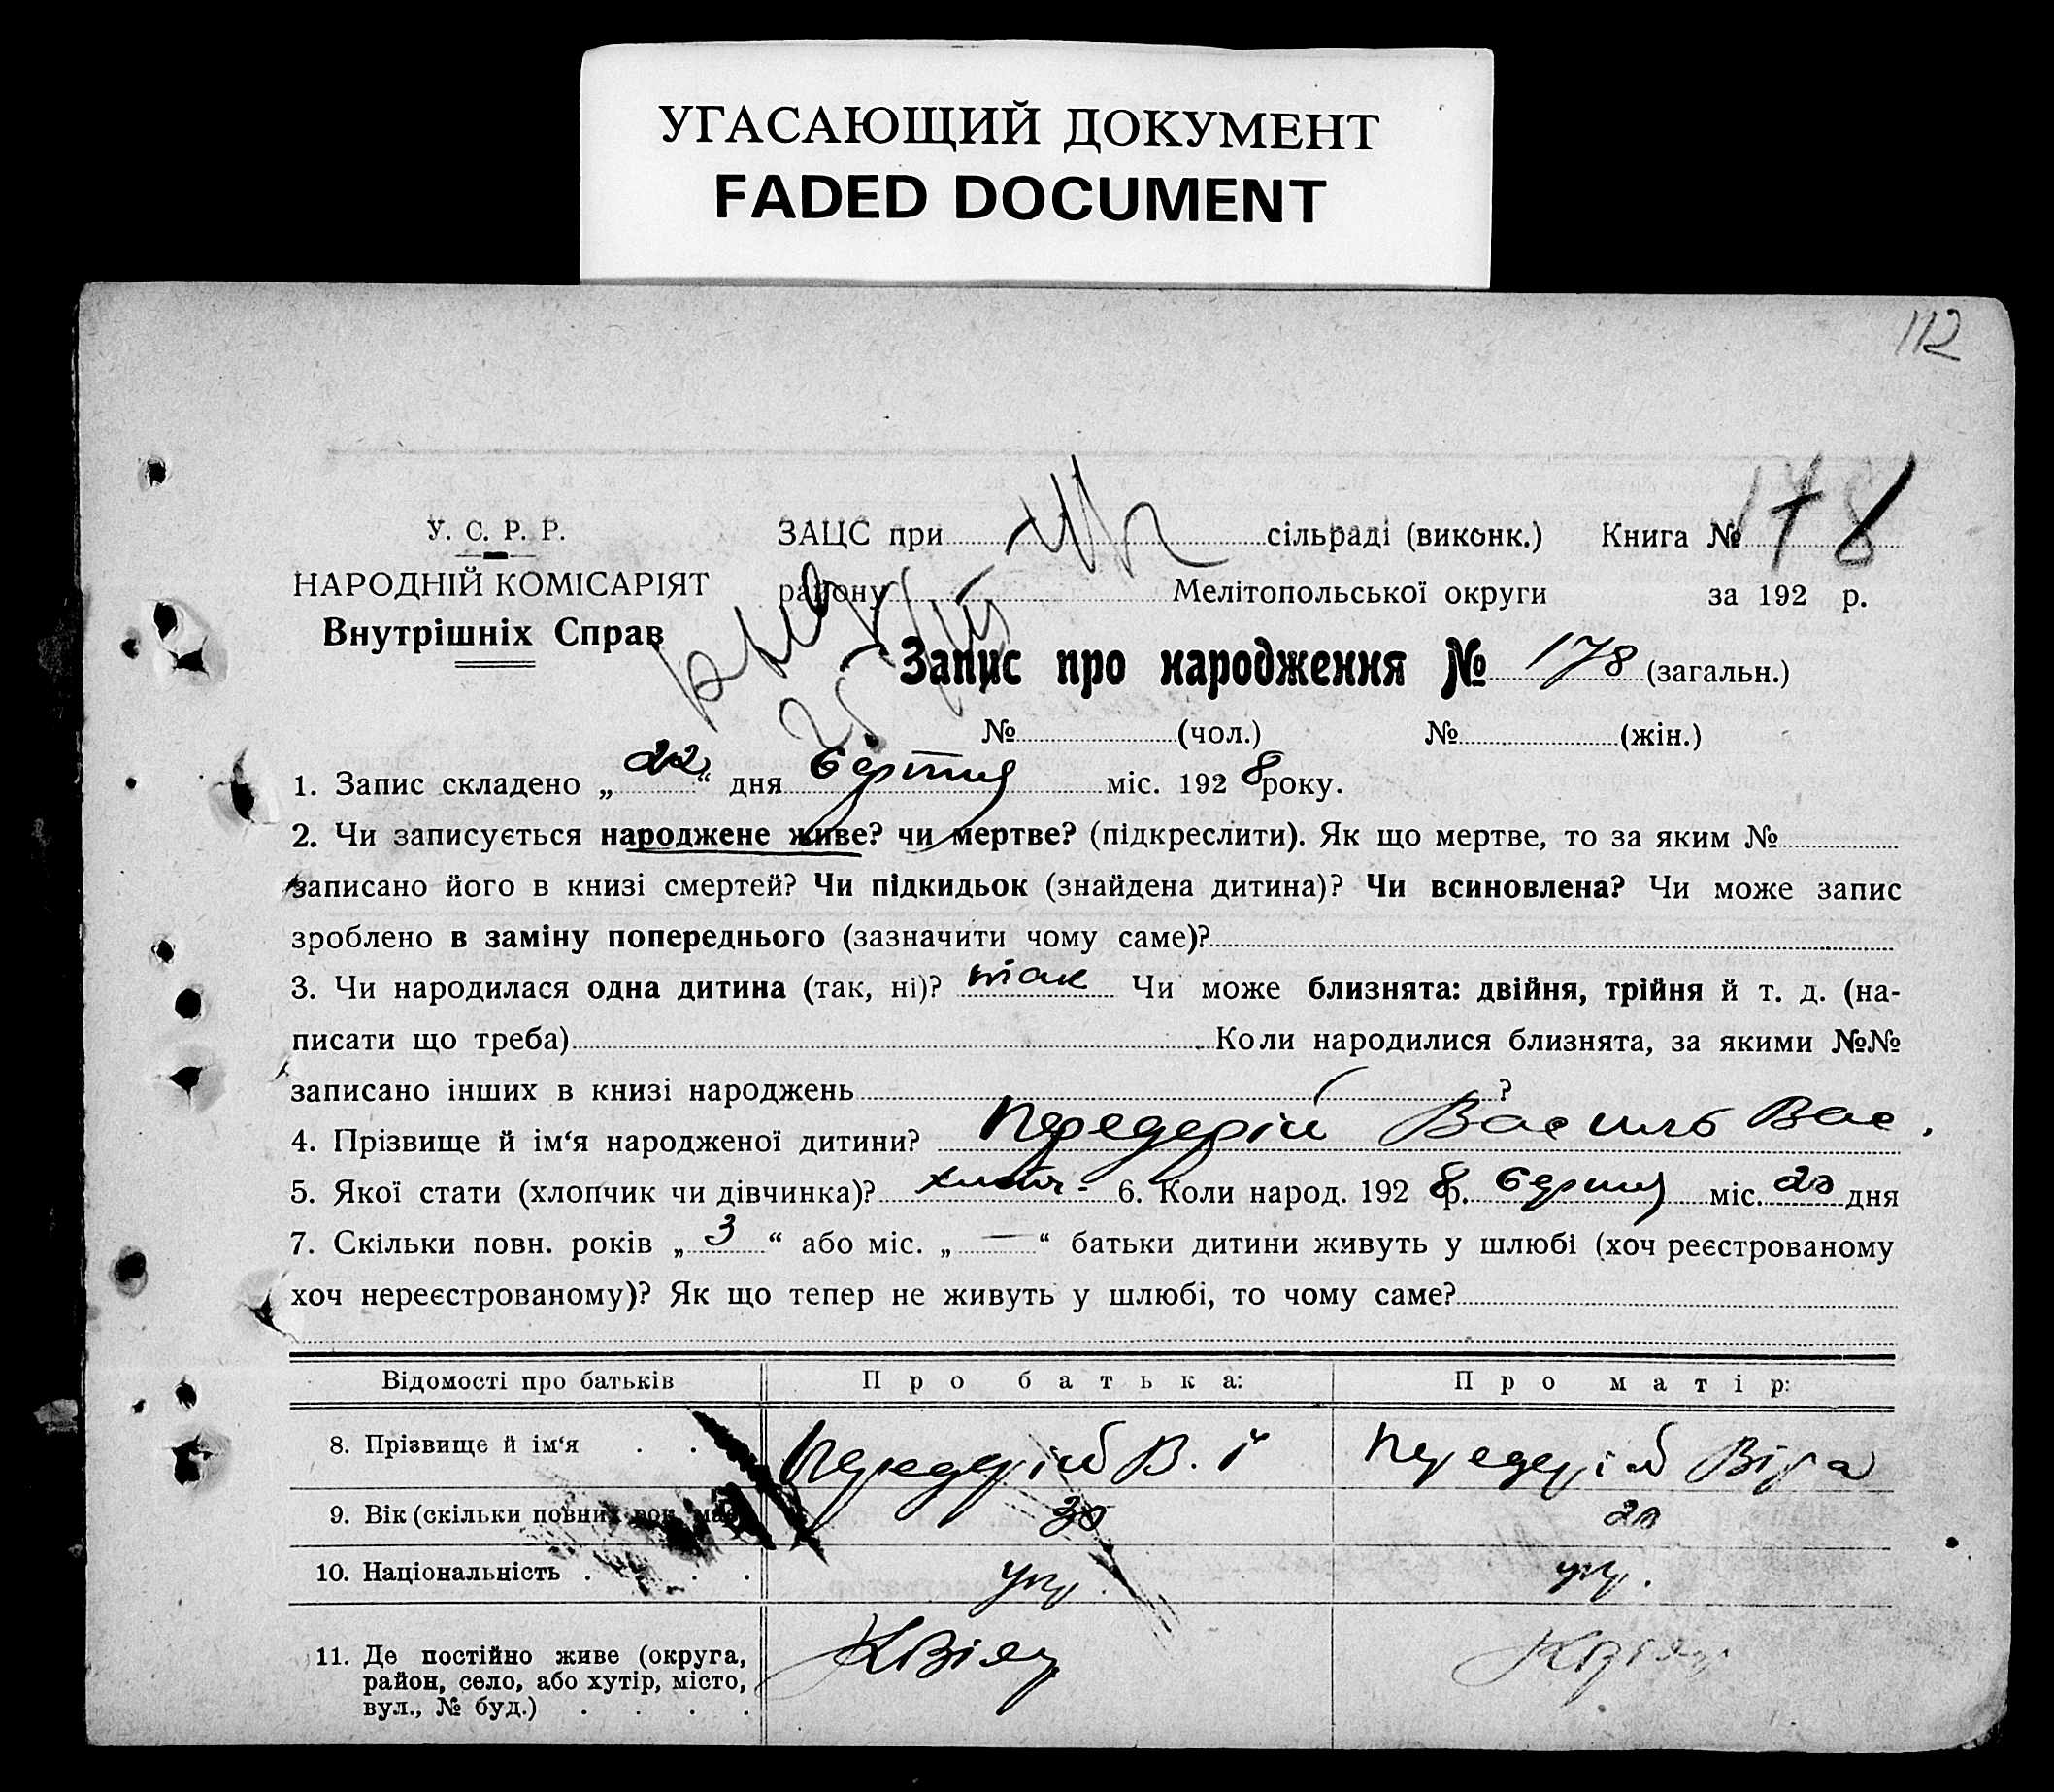 УГАСАЮЩИЙ ДОКУМЕНТ
FADED DOCUMENT
112
У. С. Р. Р.
НАРОДНІЙ КОМІСАРІЯТ
Внутрішніх Справ
ЗАЦС при сільраді (виконк.) Книга № 178
району Мелітопольської округи за 192 р.
Запис про народження № 178 (загальн.)
№ (чол.) № (жін.)
1. Запис складено „22“ дня Серпня міс. 1928 року.
2. Чи записується народжене живе? чи мертве? (підкреслити). Як що мертве, то за яким №
записано його в книзі смертей? Чи підкидьок (знайдена дитина)? Чи всиновлена? Чи може запис
зроблено в заміну попереднього (зазначити чому саме)?
3. Чи народилася одна дитина (так, ні)? так Чи може близнята: двійня, трійня й т. д. (на-
писати що треба) Коли народилися близнята, за якими №№
записано інших в книзі народжень ?
4. Прізвище й ім‘я народженої дитини? Передерій Василь Вас.
5. Якої стати (хлопчик чи дівчинка)? хлопч. 6. Коли народ. 1928 р. Серпня міс. 20 дня
7. Скільки повн. років „3“ або міс. „—“ батьки дитини живуть у шлюбі (хоч реєстрованому
хоч нереєстрованому)? Як що тепер не живуть у шлюбі, то чому саме?
Відомості про батьків Про батька: Про матір:
8. Прізвище й ім‘я Передерій В. І Передерій Віра
9. Вік (скільки повних рок. має) 30 20
10. Національність укр. укр.
11. Де постійно живе (округа,
район, село, або хутір, місто,
вул., № буд.)